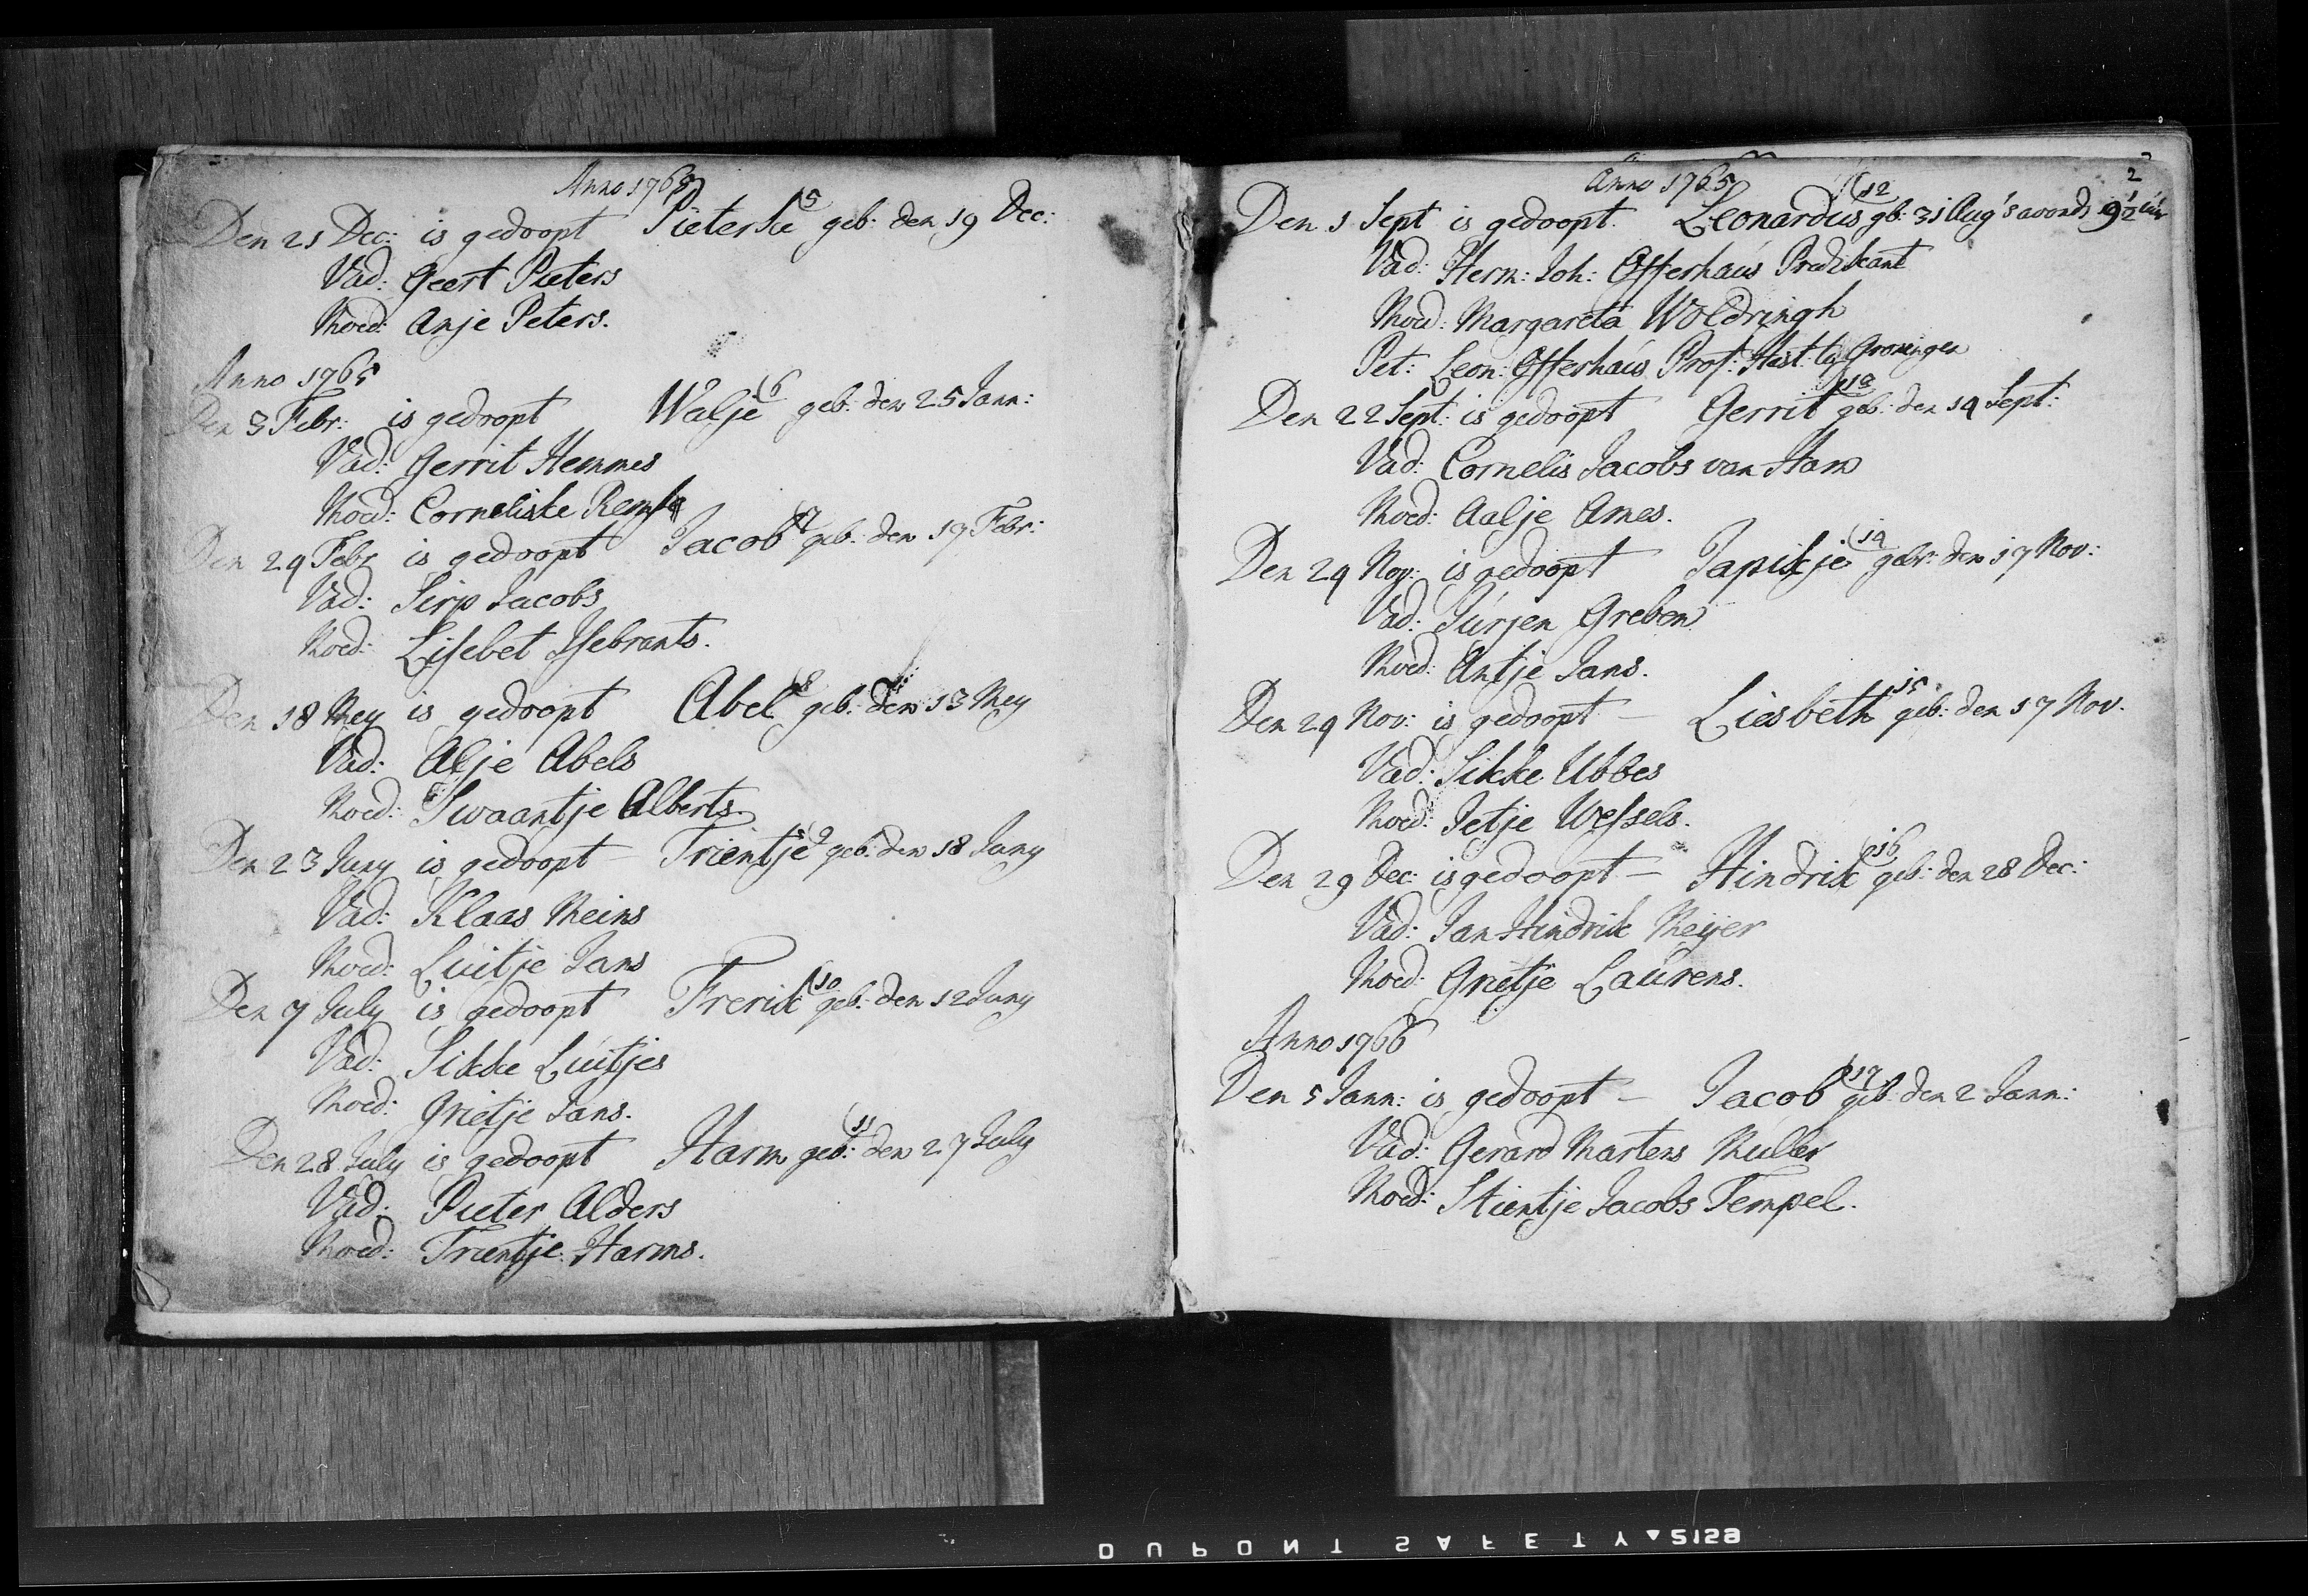 Anno 1764
Den 21 Dec: is gedoopt Pieterke 5 geb: den 19 Dec:
Vad: Geert Pieters
Moed: Anje Peters.
Anno 1765
Den 3 Febr: is gedoopt Walje 6 geb: den 25 Jann:
Vad: Gerrit Hemmes
Moed: Corneliske
Den 24 Febr is gedoopt Jacob 7 geb: den 17 Febr:
Vad: Sirp Jacobs
Moed: Lisebet Ysebrants.
Den 18 Mey is gedoopt Abel 8 geb: den 13 Mey
Vad: Alje Abels
Moed: Swaantje Alberts.
Den 23 Juny is gedoopt – Trientje 9 geb: den 18 Juny
Vad: Klaas Meins
Moed: Luitje Jans
Den 7 July is gedoopt Frerik 10 geb: den 12 Juny
Vad: Sikke Luitjes
Moed: Grietje Jans.
Den 28 July is gedoopt Harm 11 geb: den 27 July
Vad: Pieter Alders
Moed: Trientje Harms.
2
Anno 1765
Den 1 Sept is gedoopt Leonardus 12 gb: 31 Aug 's avonds 9½ uur
Vad: Herm: Joh: Offerhaus Predikant
Moed: Margareta Woldringh
Pet: Leon: Offerhaus Prof: Hist: te Groningen
Den 22 Sept: is gedoopt Gerrit 13 geb: den 14 Sept:
Vad: Cornelis Jacobs van Ham
Moed: Aalje Ames.
Den 24 Nov: is gedoopt Japikje 14 gebr: den 17 Nov:
Vad: Jurjen Greben
Moed: Antje Jans.
Den 24 Nov: is gedoopt – Liesbeth 15 geb: den 17 Nov.
Vad: Sikke Ubbes
Moed: Jetje Wessels.
Den 29 Dec: is gedoopt – Hindrik 16 geb: den 28 Dec:
Vad: Jan Hindrik Meijer
Moed: Grietje Laurens.
Anno 1766
Den 5 Jann: is gedoopt – Jacob 17 geb: den 2 Jann:
Vad: Gerard Martens Muller
Moed: Stientje Jacobs Tempel.
DUPONT SAFETY 2159